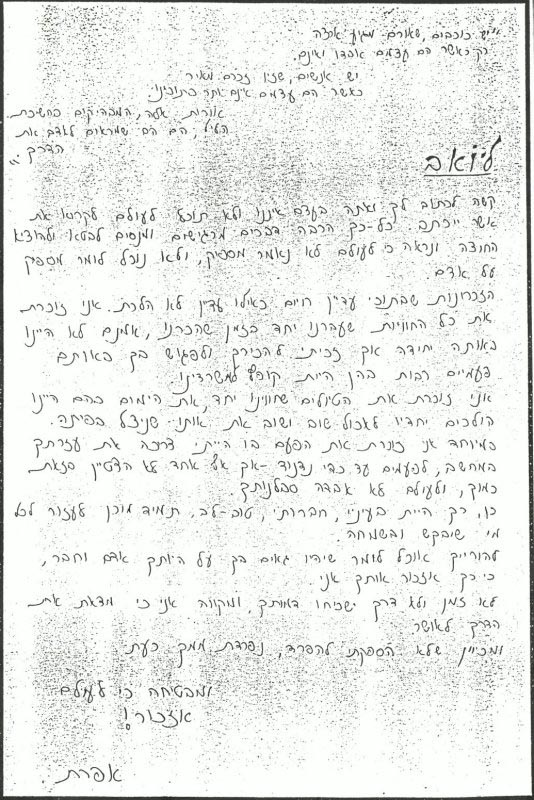 "יש כוכבים, שאורם מגיע ארצה
רק כאשר הם עצמם אבדו ואינם.
יש אנשים, שזיו זכרם מאיר
כאשר הם עצמם אינם יותר בתוכינו.
אורות אלה, המבהיקים בחשכת
הליל, הם הם שמראים לאדם את
הדרך."
ליואב
קשה לכתוב לך ואתה בעצם איננו ולא תוכל לעולם לקרוא את
אשר ייכתב. כל-כך הרבה דברים מרגישים ומנסים לבטא ולהוציא
החוצה ונראה כי לעולם לא נאמר מספיק, ולא נוכל לומר מספיק
על אדם.
הזכרונות שבתוכי עדיין חיים כאילו עדיין לא הלכת. אני זוכרת
את כל החוויות שעברנו יחד בזמן שהכרנו, אמנם לא היינו
באותה יחידה אך זכיתי להכירך ולפגוש בך באותם
פעמיים רבות בהן היית קופץ למשרדינו.
אני זוכרת את הטיולים שחווינו יחד, את הימים בהם היינו
הולכים יחדיו לאכול שוב ושוב את אותו שניצל בפיתה.
במיוחד אני זוכרת את הפעם בו הייתי צריכה את עזרתך
במחשב, לפעמים עד כדי נדנוד - אך אף אחד לא הצטיין בזאת
כמוך, ולעולם לא אבדה סבלנותך.
כן, כך היית בעיניי, חברותי, טוב-לב, תמיד מוכן לעזור לכל
מי שיבקש ובשמחה.
להורייך אוכל לומר שיהיו גאים בך על היותך אדם וחבר,
כי כך אזכור אותך אני.
לא זמן ולא דרך ישכיחו דמותך, ומקווה אני כי מצאת את
הדרך לאושר.
ומכיוון שלא הספקתי להפרד, נפרדת ממך כעת
ומבטיחה כי לעולם
אזכור!
אפרת.